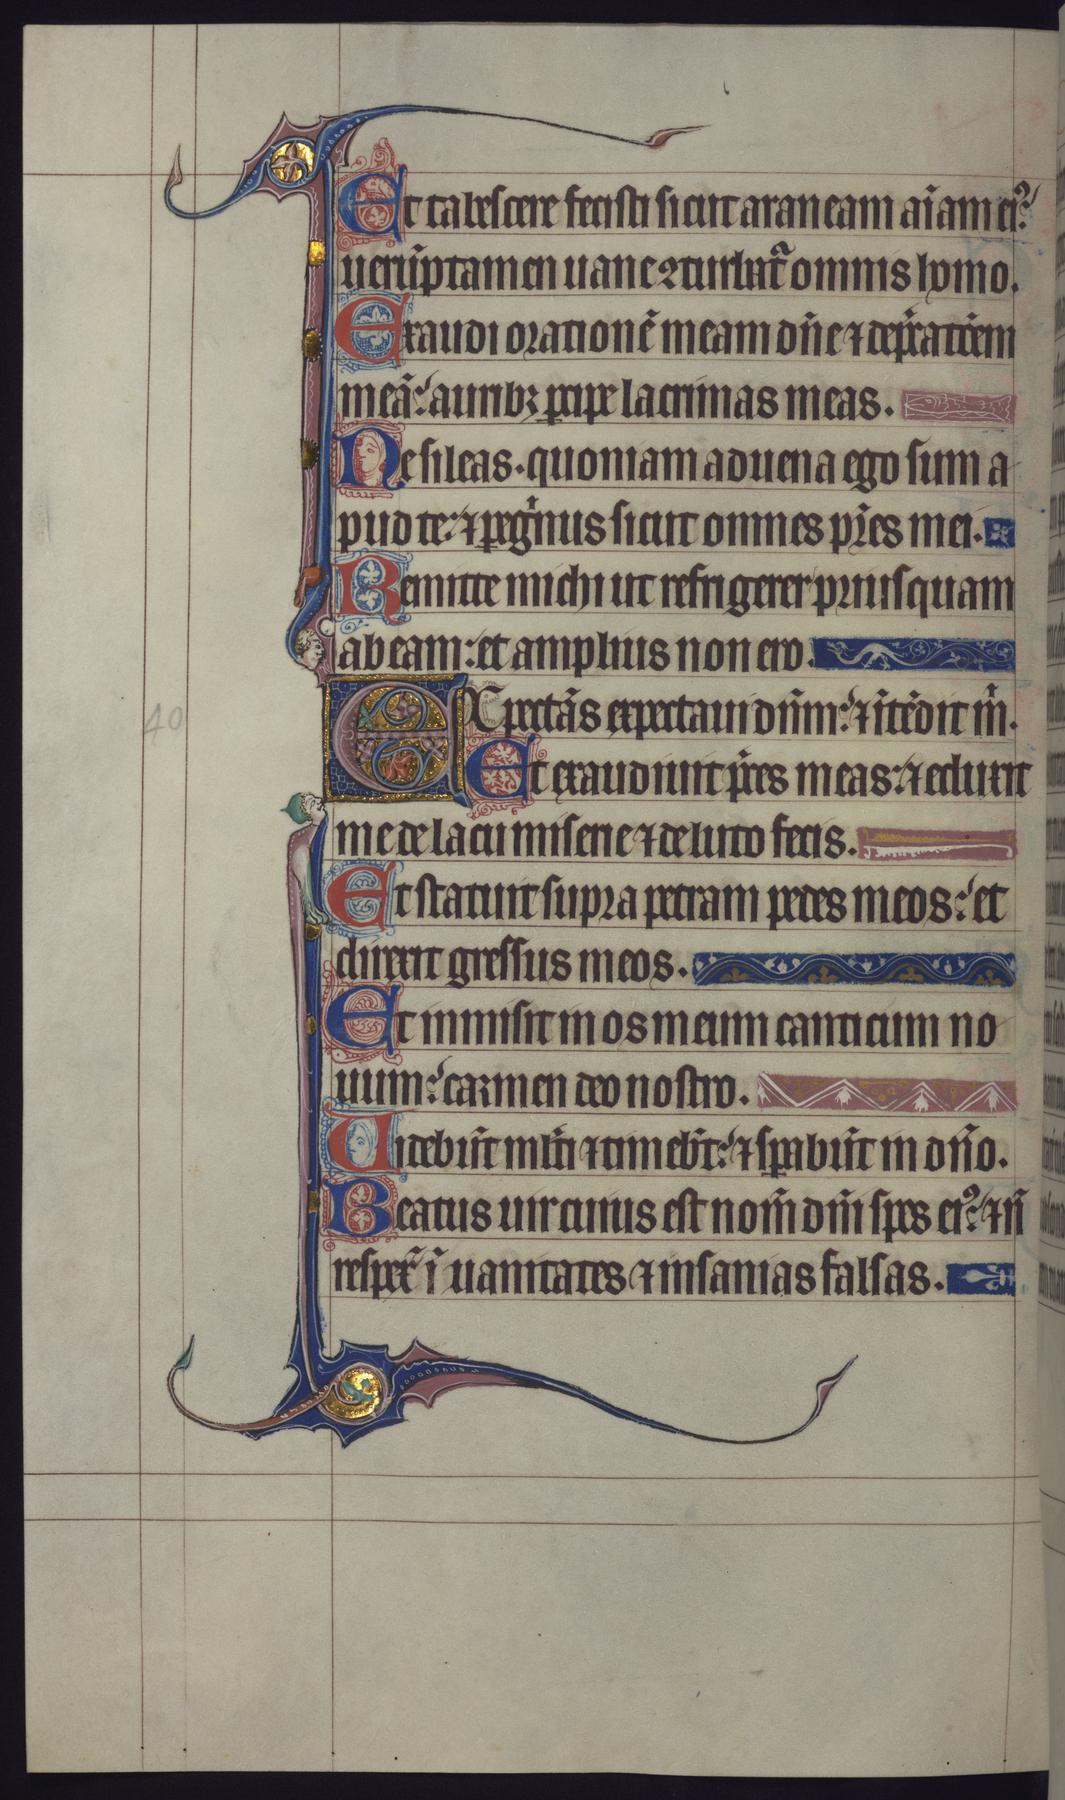 Et tabescere fecisti sicut araneam aīam eiꝰ:
uerūptamen uane ꝯturbat᷑ omnis homo.
Exaudi orationē meam dn̄e ⁊ dep̄catōem
meā: auribꝫ ꝑcipe lacrimas meas.
Ne sileas. quoniam aduena ego sum a
pud te: ⁊ ꝑegͥnus sicut omnes pr̄es mei.
Remitte michi ut refrigerer priusquam
abeam: et amplius non ero.
EXpectās expectaui dn̄m: ⁊ ītēdit m̄.
Et exaudiuit p̄ces meas: ⁊ eduxit
me de lacu miserie ⁊ de luto fecis.
Et statuit supra petram pedes meos: et
direxit gressus meos.
Et inmisit in os meum canticum no
uum: carmen deo nostro.
Uidebūt ml̄ti ⁊ timebūt: ⁊ sꝑabūt in dn̄o.
Beatus uir cuius est nom̄ dn̄i spes eiꝰ: ⁊ n̄
respex̄ ī uanitates ⁊ insanias falsas.
40